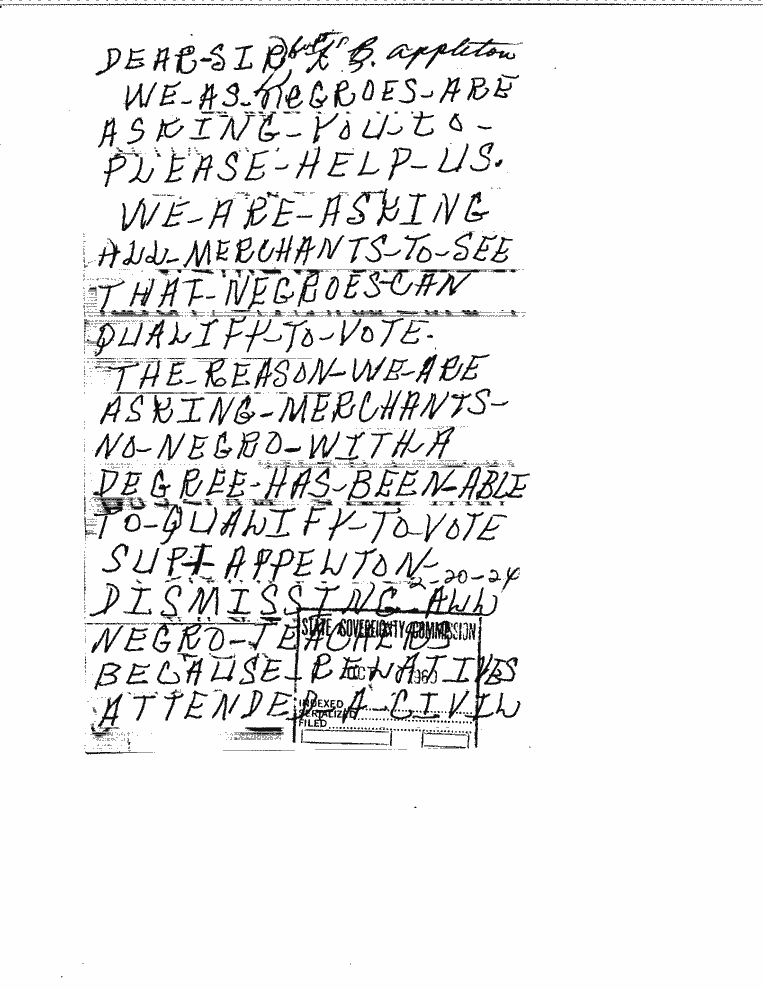 DEAR-SIR
B. Appleton
WE-AS-NEGROES-ARE
ASKING-YOU-TO-
PLEASE-HELP-US.
WE-ARE-ASKING
ALL-MERCHANTS-TO-SEE
THAT-NEGROES-CAN
QUALIFY-TO-VOTE.
THE-REASON-WE-ARE
ASKING-MERCHANTS-
NO-NEGRO-WITH-A
DEGREE-HAS-BEEN-ABLE
TO-QUALIFY-TO-VOTE
SUPT APPELTON-
2-20-24
DISMISSING-ALL
NEGRO-TEACHERS
BECAUSE-RELATIVES
ATTENDED-A-CIVIL
STATE SOVEREIGNTY COMMISSION
INDEXED
SERIALIZED
FILED